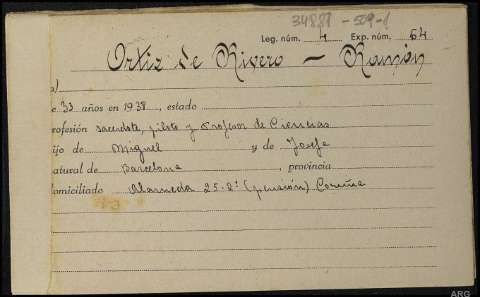 34881-509-1
Leg. núm. 4 Exp. núm. 64
Ortiz de Rivero — Ramón
)
e 33 años en 1938, estado
rofesión sacerdote, piloto y Profesor de Ciencias
ijo de Miguel y de Josefa
atural de Barcelona, provincia
omiciliado Alameda 25-2º (pensión) Coruña
ARG